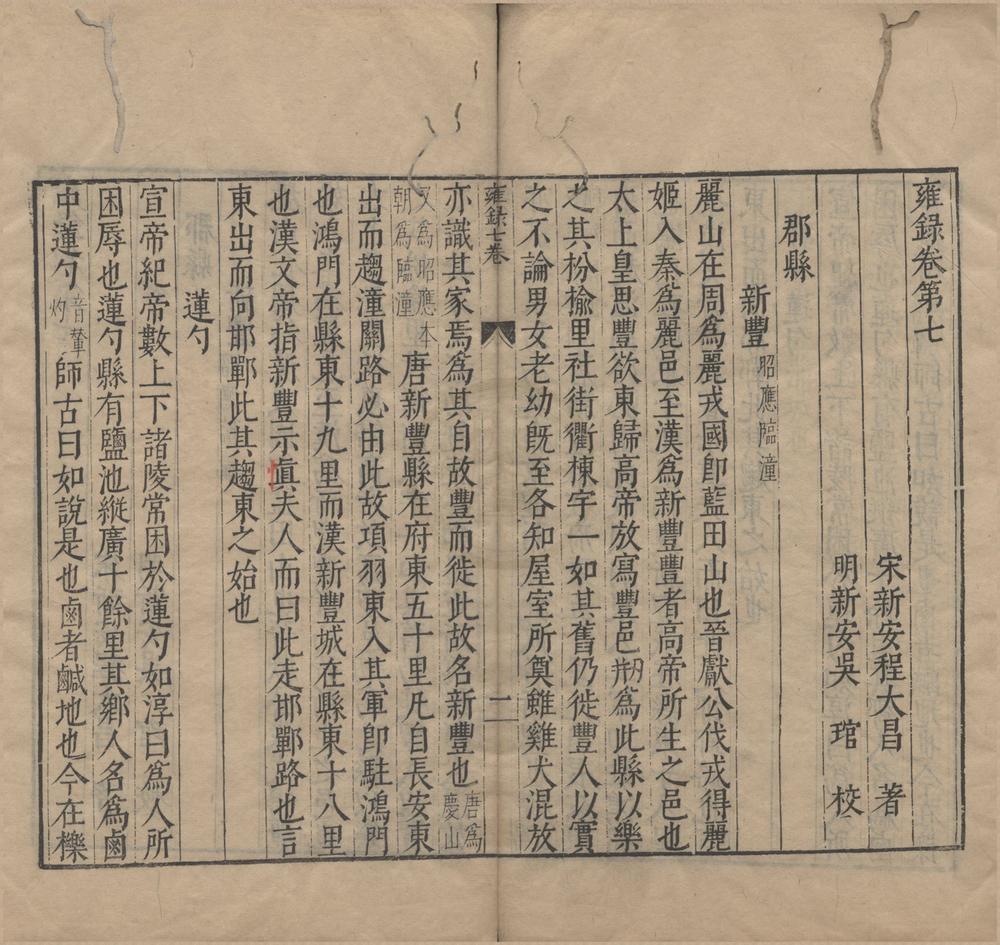 雍錄卷第七
宋新安程大昌　著
明新安吳　琯　校
郡縣
新豐昭應臨潼
麗山在周爲麗戎國卽藍田山也晉獻公伐戎得麗
姬入秦爲麗邑至漢爲新豐豐者高帝所生之邑也
太上皇思豐欲東歸高帝放寫豐邑爲此縣以樂
之其枌榆里社街衢棟宇一如其舊仍徙豐人以實
之不論男女老幼旣至各知屋室所奠雖雞犬混放
雍錄七卷　一
亦識其家焉爲其自故豐而徙此故名新豐也唐爲慶山
又爲昭應本朝爲臨潼唐新豐縣在府東五十里凡自長安東
出而趨潼關路必由此故項羽東入其軍卽駐鴻門
也鴻門在縣東十九里而漢新豐城在縣東十八里
也漢文帝指新豐示眞夫人而曰此走邯鄲路也言
東出而向邯鄲此其趨東之始也
蓮勺
宣帝紀帝數上下諸陵常困於蓮勺如淳曰爲人所
困辱也蓮勺縣有鹽池縱廣十餘里其鄉人名爲鹵
中蓮勺音輦灼師古曰如說是也鹵者鹹地也今在櫟